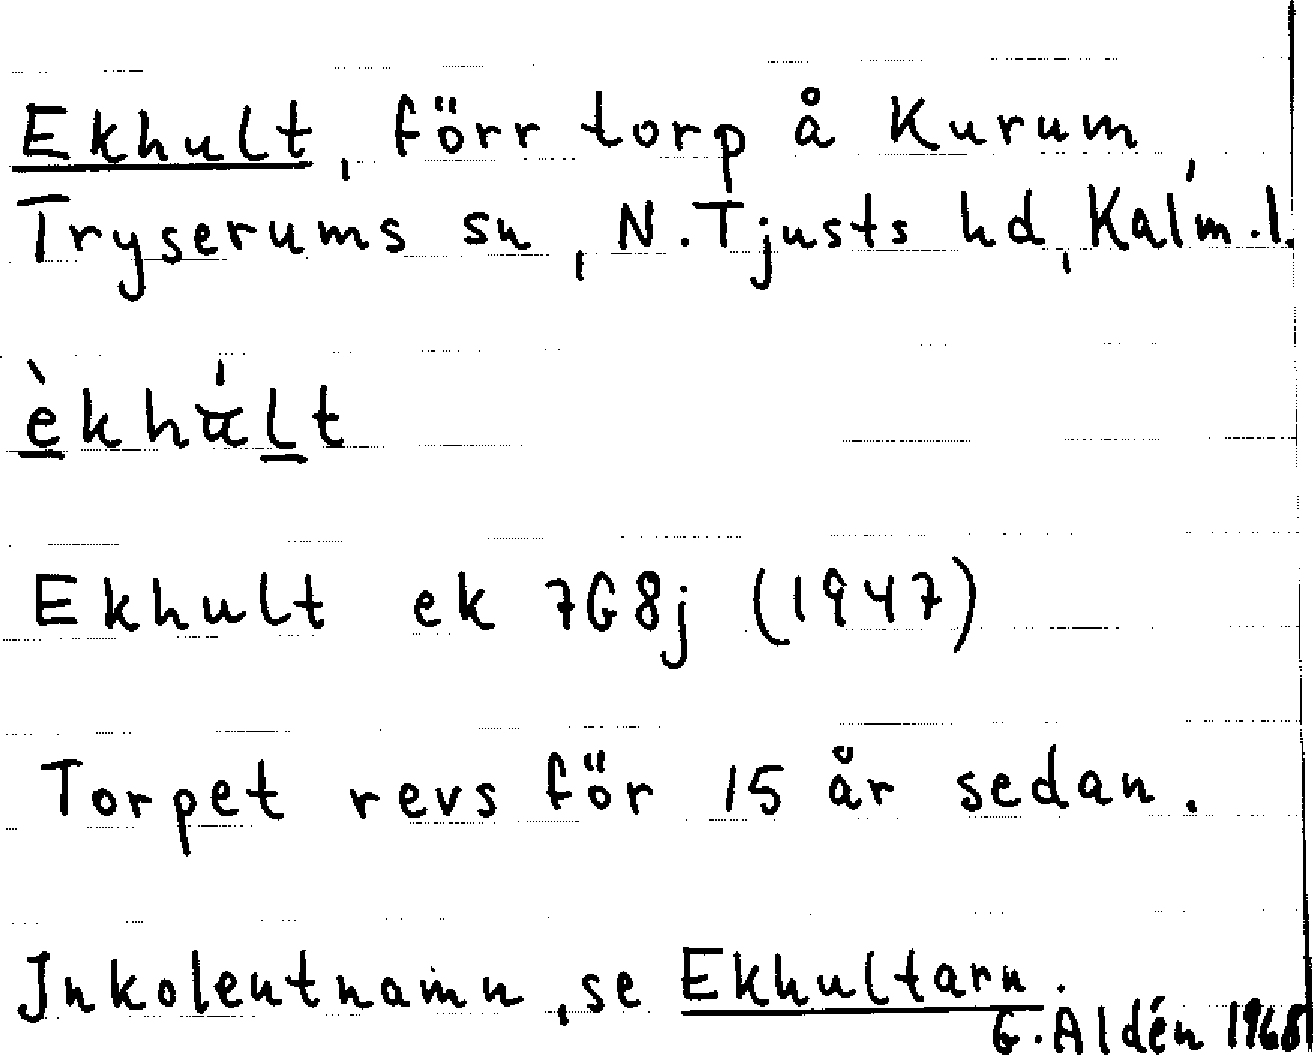 Ekhult, förr torp å Kurum,
Tryserums sn, N. Tjusts hd, Kalm. l.
èkhált
Ekhult ek 7G8j (1947)
Torpet revs för 15 år sedan.
Inkolentnamn, se Ekhultarn.
G. Aldén